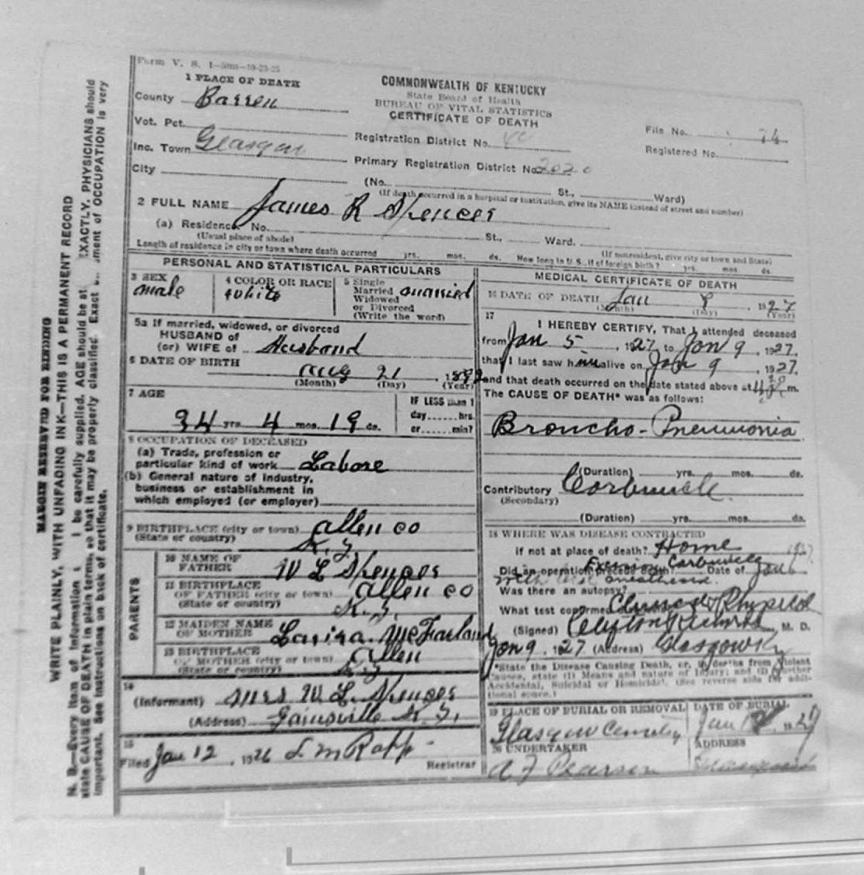 Form V. S. 1-50m-10-23-25
COMMONWEALTH OF KENTUCKY
State Board of Health
BUREAU OF VITAL STATISTICS
CERTIFICATE OF DEATH
1 PLACE OF DEATH
County Barren
Vot. Pct.
Inc. Town Glasgow
City
Registration District No.
Primary Registration District No. 2020
File No.
Registered No.
(No. St., Ward)
(If death occurred in a hospital or institution, give its NAME instead of street and number)
2 FULL NAME James R Spencer
(a) Residence. No. St., Ward.
(Usual place of abode) (If nonresident, give city or town and State)
Length of residence in city or town where death occurred yrs. mos. ds. How long in U. S., if of foreign birth? yrs. mos. ds.
PERSONAL AND STATISTICAL PARTICULARS
3 SEX male
4 COLOR OR RACE white
5 Single Married Widowed or Divorced (Write the word) married
5a If married, widowed, or divorced
HUSBAND of
(or) WIFE of Husband
6 DATE OF BIRTH Aug 21, 1892
(Month) (Day) (Year)
7 AGE
34 yrs. 4 mos. 19 ds.
IF LESS than 1
day ---- hrs.
or ---- min?
8 OCCUPATION OF DECEASED
(a) Trade, profession or
particular kind of work Labore
(b) General nature of Industry,
business or establishment in
which employed (or employer)
9 BIRTHPLACE (city or town) Allen co
(State or country) K.Y.
PARENTS
10 NAME OF FATHER W L Spencer
11 BIRTHPLACE
OF FATHER (city or town) Allen co
(State or country) K.Y.
12 MAIDEN NAME
OF MOTHER McFarland
13 BIRTHPLACE
OF MOTHER (city or town) Allen
(State or country) K.Y.
14
(Informant) Mrs W L Spencer
(Address) Gainsville K.Y.
15
Filed Jan 12, 1926
Registrar
MEDICAL CERTIFICATE OF DEATH
16 DATE OF DEATH Jan 1927
(Month) (Day) (Year)
17
I HEREBY CERTIFY, That I attended deceased
from Jan 5, 1927 to Jan 9, 1927.
that I last saw him alive on Jan 9, 1927.
and that death occurred on the date stated above at m.
The CAUSE OF DEATH* was as follows:
Broncho-Pneumonia
(Duration) yrs. mos. ds.
Contributory Carbuncle
(Secondary)
(Duration) yrs. mos. ds.
18 WHERE WAS DISEASE CONTRACTED
if not at place of death? Home
Did an operation precede death? Date of Jan
Was there an autopsy?
What test confirmed
(Signed) M. D.
Jan 9, 1927 (Address) Glasgow Ky
*State the Disease Causing Death, or, in deaths from Violent
Causes, state (1) Means and nature of Injury; and (2) whether
Accidental, Suicidal or Homicidal. (See reverse side for addi-
tional space.)
19 PLACE OF BURIAL OR REMOVAL DATE OF BURIAL
Glasgow Cemetery Jan 1927
20 UNDERTAKER ADDRESS
A F Pearson
MARGIN RESERVED FOR BINDING
WRITE PLAINLY, WITH UNFADING INK—THIS IS A PERMANENT RECORD
N. B.—Every item of information be carefully supplied. AGE should be EXACTLY, PHYSICIANS should
state CAUSE OF DEATH in plain terms, so that it may be properly classified. Exact statement of OCCUPATION is very
important. See instructions on back of certificate.